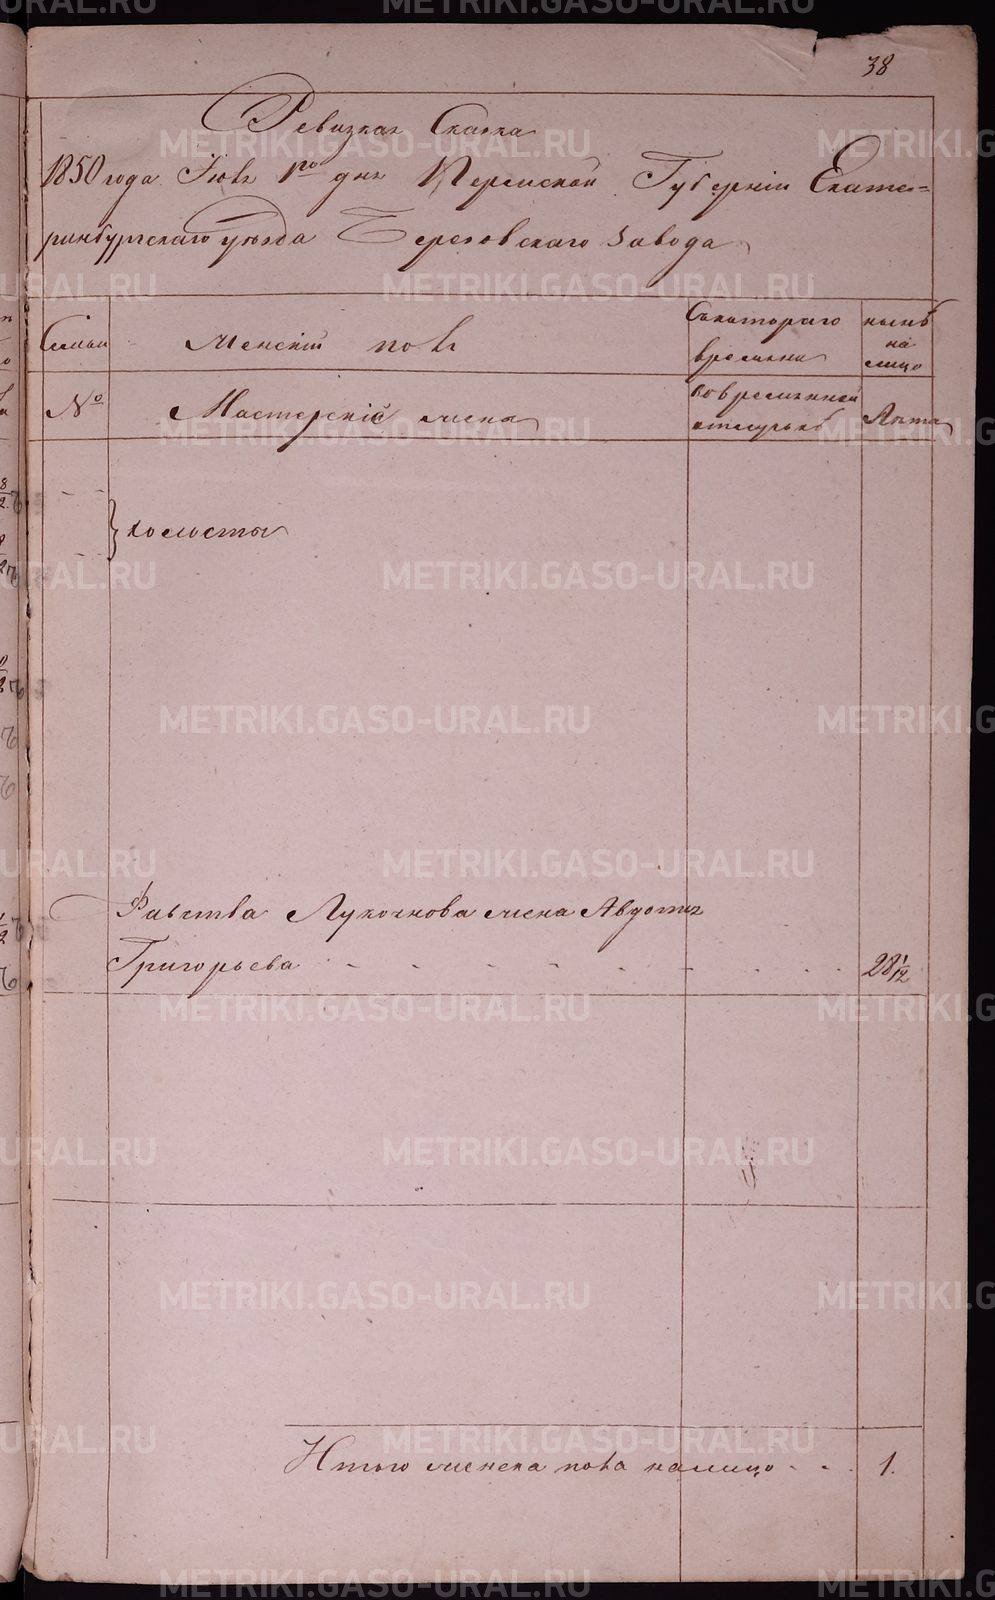 38
Ревизкая Сказка
1850 года Іюля 1го дня Пермской Губерніи Екате=
ринбургскаго уѣзда Березовскаго завода
Семьи
Женскій полъ
Съкотораго
времени
нынѣ
на
лицо
№
Мастерскія жены
во временной
отлучкѣ
Лѣта
холосты
Фавства Лукочнова жена Авдотья
Григорьева
28 1/12
Итого женска пола налицо
1.
METRIKI.GASO-URAL.RU